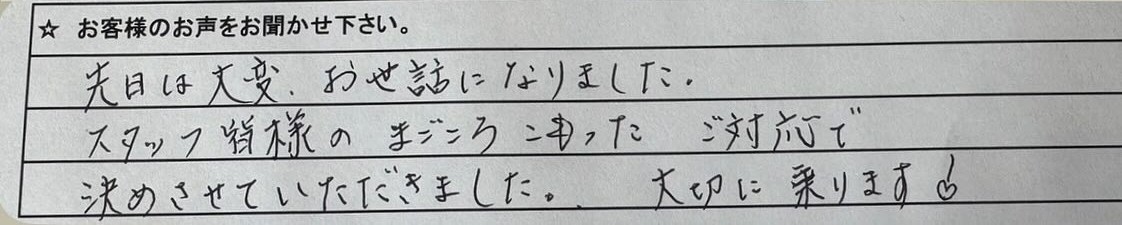 ☆ お客様のお声をお聞かせ下さい。
先日は大変、お世話になりました。
スタッフ皆様の まごころ こもった ご対応で
決めさせていただきました。 大切に 乗ります